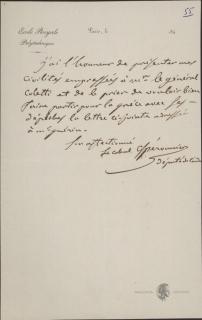 55
École Royale
Polytechnique
Paris, le 184
J'ai l'honneur de présenter mes
civilités empressées à Mr. le général
Coletti et de le prier de vouloir bien
faire partir pour la Grèce avec ses
dépêches la lettre ci-jointe adressée
à
son affectionné
le colonel
député